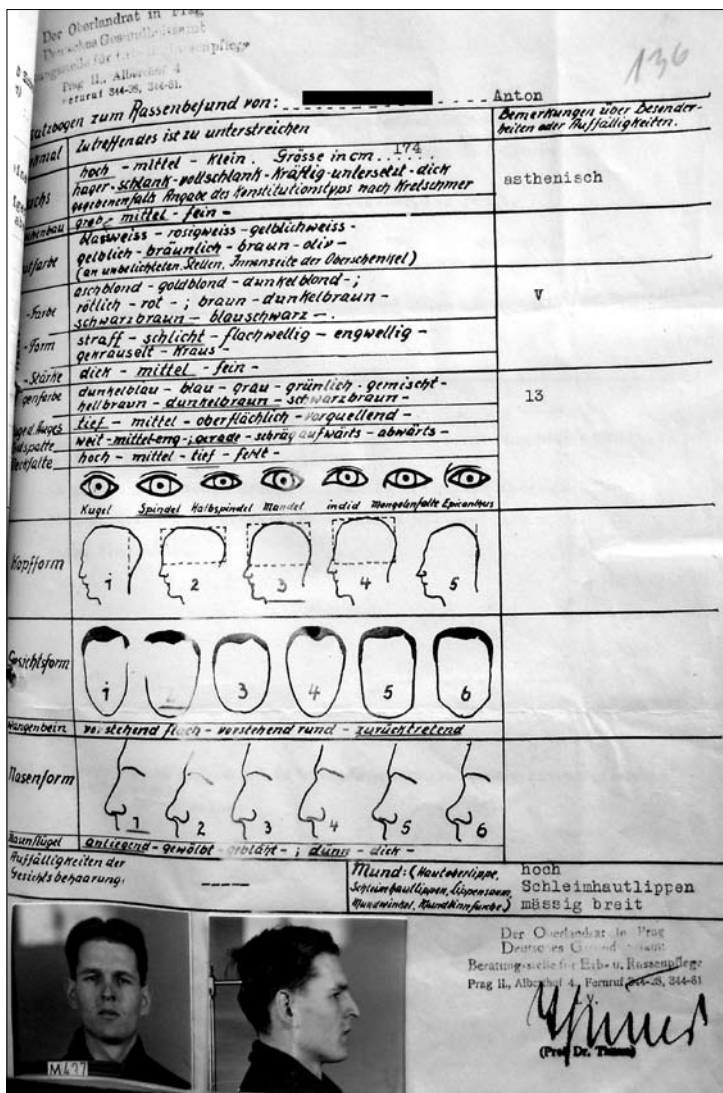 Der Oberlandrat in Prag
Deutsches Gesundheitsamt
Prag II., Alberthof 4
Fernruf 344-38, 344-61.
136
zum Rassenbefund von: Anton
Zutreffendes ist zu unterstreichen
Bemerkungen über Besonder-
heiten oder Auffälligkeiten.
hoch - mittel - klein. Grösse in cm. 174
hager - schlank - vollschlank - kräftig - untersetzt - dick
gegebenenfalls Angabe des Konstitutionstyps nach Kretschmer
asthenisch
grob - mittel - fein -
blassweiss - rosigweiss - gelblichweiss -
gelblich - bräunlich - braun - oliv -
(an unbelichteten Stellen, Innenseite der Oberschenkel)
aschblond - goldblond - dunkelblond - ;
-Farbe rötlich - rot - ; braun - dunkelbraun - V
schwarzbraun - blauschwarz - .
-Form straff - schlicht - flachwellig - engwellig -
gekräuselt - Kraus -
-Stärke dick - mittel - fein -
dunkelblau - blau - grau - grünlich - gemischt -
hellbraun - dunkelbraun - schwarzbraun - 13
tief - mittel - oberflächlich - vorquellend -
weit - mittel - eng - ; gerade - schräg aufwärts - abwärts -
hoch - mittel - tief - fehlt -
Kugel Spindel Halbspindel Mandel indid Mongolenfalte Epicanthus
Kopfform 1 2 3 4 5
Gesichtsform 1 2 3 4 5 6
Wangenbein vorstehend flach - vorstehend rund - zurücktretend
Nasenform 1 2 3 4 5 6
Nasenflügel anliegend - gewölbt - gebläht - ; dünn - dick -
Auffälligkeiten der
Gesichtsbehaarung: ----
Mund: (Hautoberlippe,
Schleimhautlippen, Lippensaum,
Mundwinkel, Mundkinnfurche)
hoch
Schleimhautlippen
mässig breit
Der Oberlandrat in Prag
Deutsches Gesundheitsamt
Beratungsstelle für Erb- u. Rassenpflege
Prag II., Alberthof 4, Fernruf 344-38, 344-61
M437